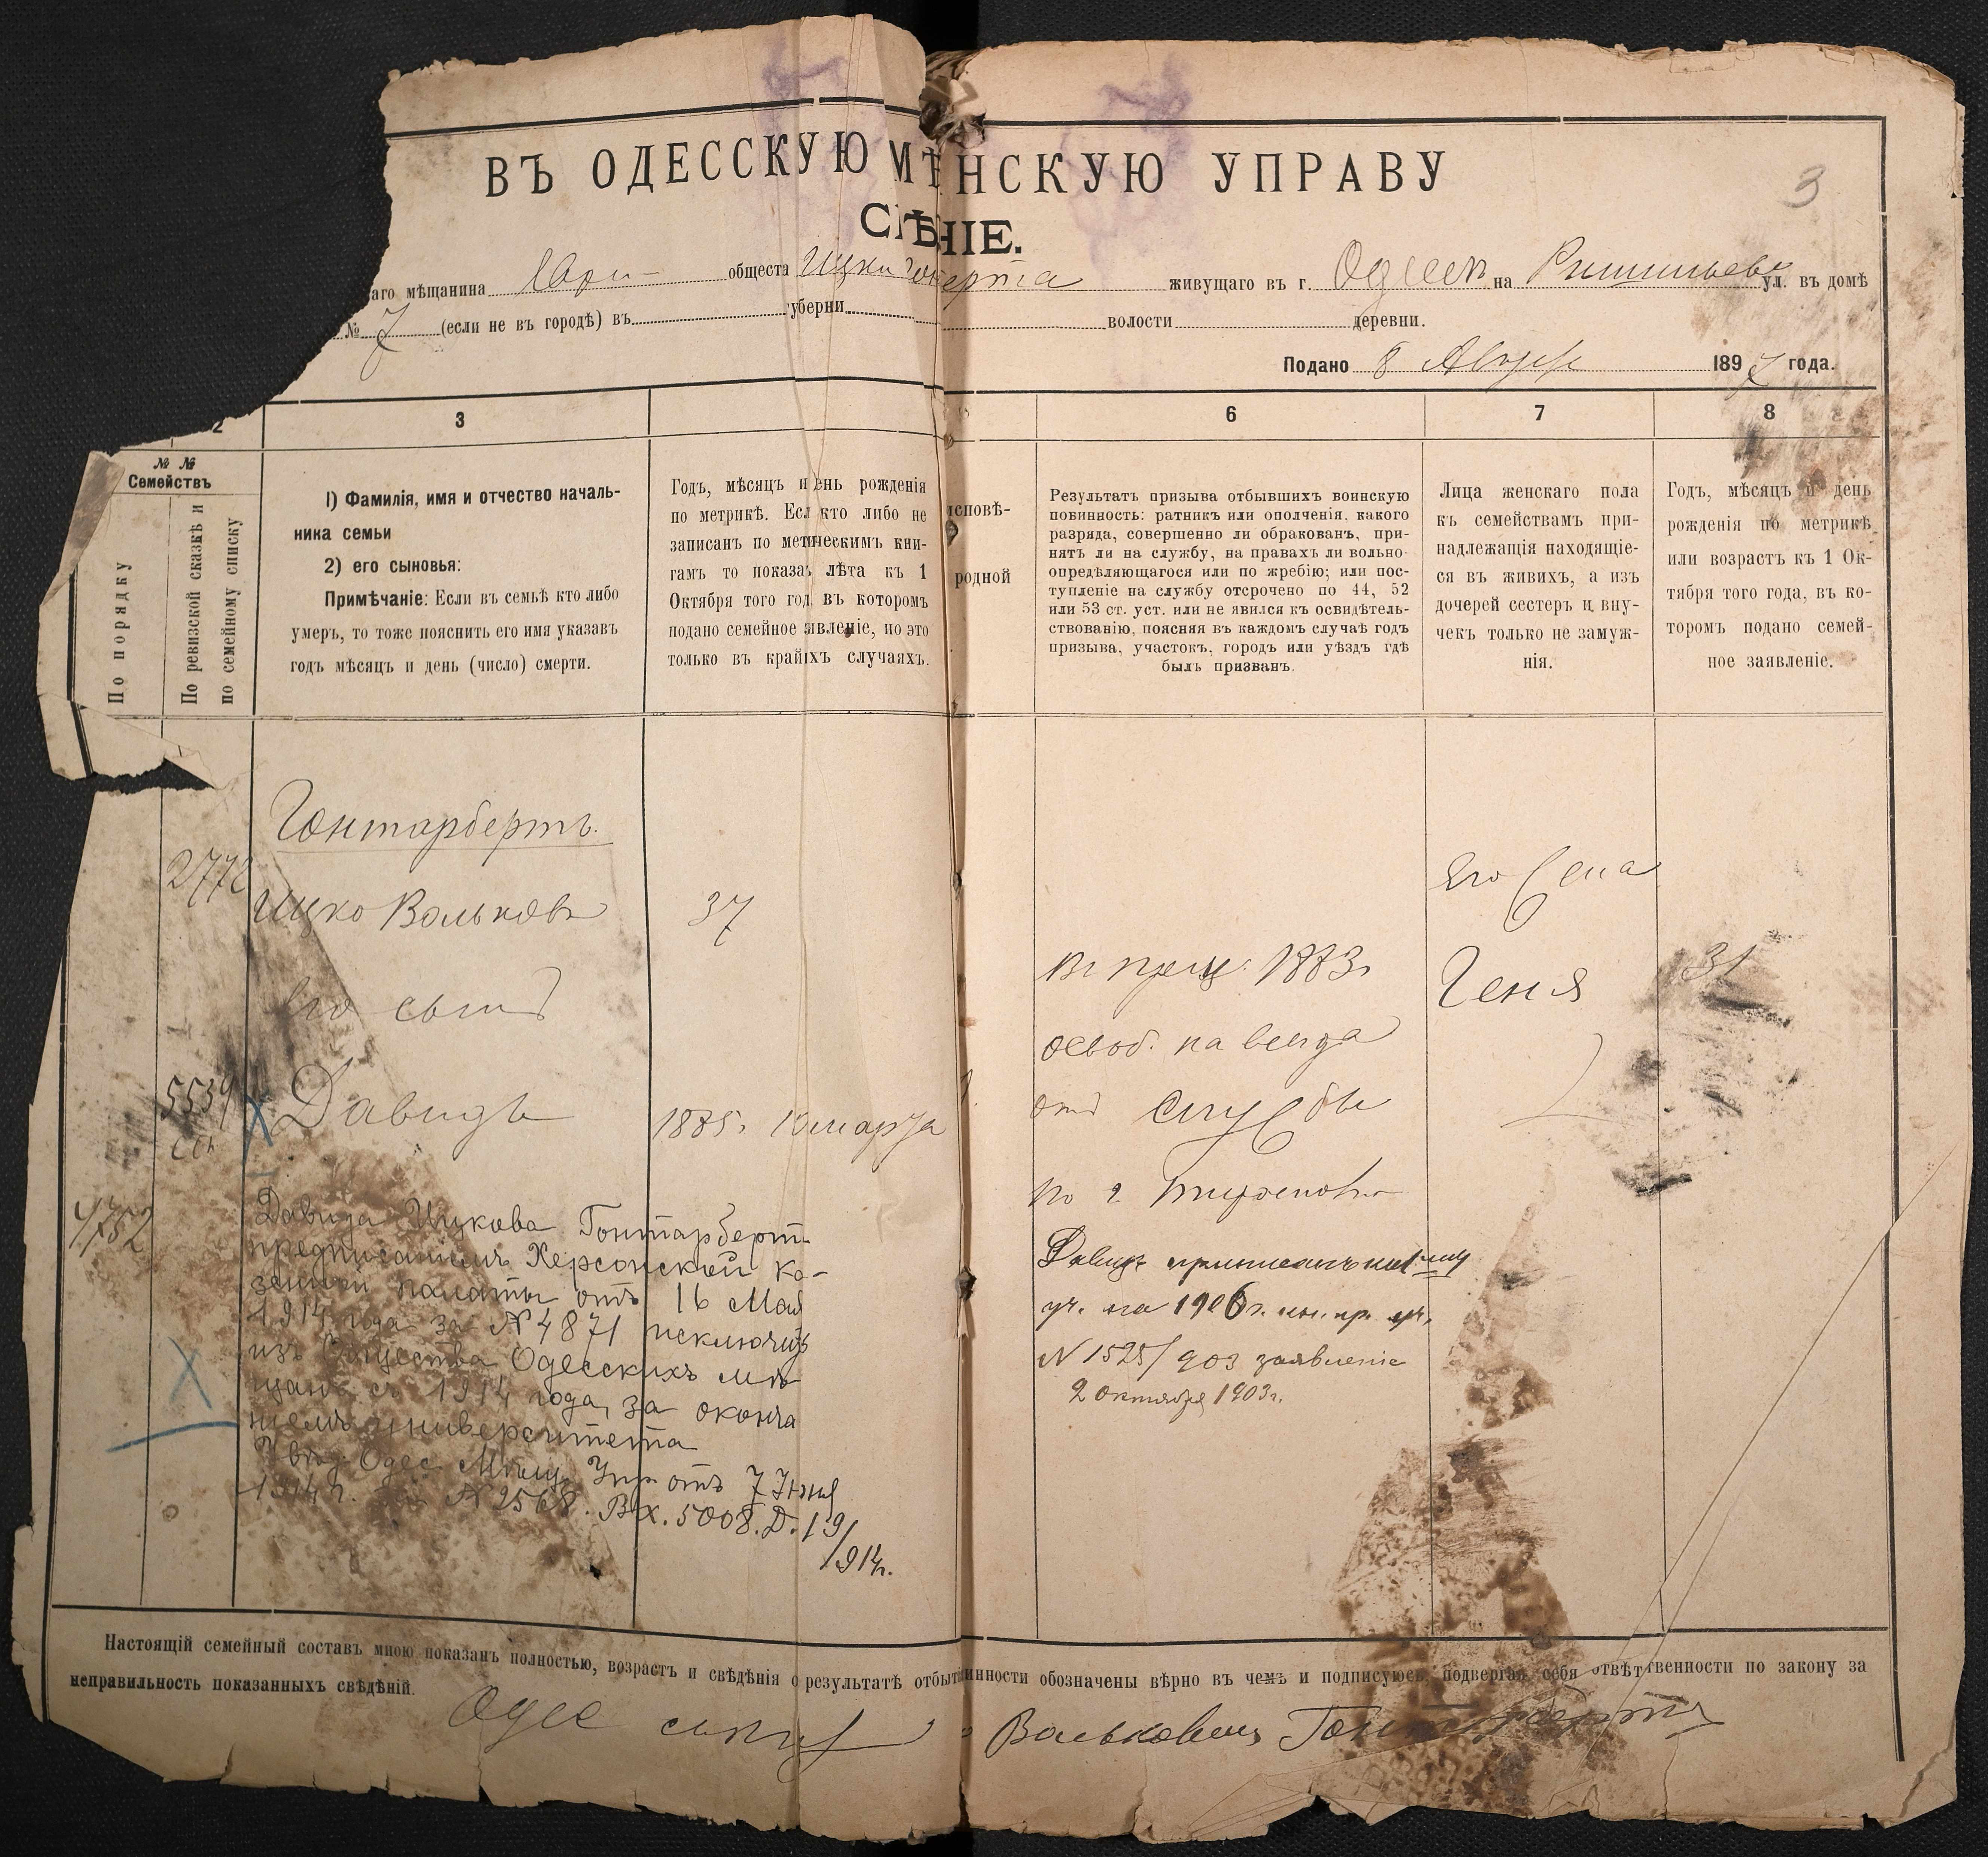 3
ВЪ ОДЕССКУЮ МѢ НСКУЮ УПРАВУ
НІЕ.
аго мѣщанина общеста Ицки живущаго въ г. Одессѣ на ул. въ домѣ
№ 7 (если не въ городѣ) въ губерни волости деревни.
Подано 8 1897 года.
2 3 6 7 8
№ №
Семействъ
По порядку
По ревизской сказкѣ и
по семейному списку
1) Фамилія, имя и отчество началь-
ника семьи
2) его сыновья:
Примѣчаніе: Если въ семьѣ кто либо
умеръ, то тоже пояснить его имя указавъ
годъ мѣсяцъ и день (число) смерти.
Годъ, мѣсяцъ и ень рожденія
по метрикѣ. Есл кто либо не
записанъ по мет ческимъ кни-
гамъ то показа лѣта къ 1
Октября того год въ которомъ
подано семейное явленіе, но это
только въ край хъ случаяхъ.
исповѣ-
родной
Результатъ призыва отбывшихъ воинскую
повинность: ратникъ или ополченія, какого
разряда, совершенно ли обракованъ, при-
нятъ ли на службу, на правахъ ли вольно-
опредѣляющагося или по жребію; или пос-
тупленіе на службу отсрочено по 44, 52
или 53 ст. уст. или не явился къ освидѣтель-
ствованію, поясняя въ каждомъ случаѣ годъ
призыва, участокъ, городъ или уѣздъ гдѣ
былъ призванъ.
Лица женскаго пола
къ семействамъ при-
надлежащія находящіе-
ся въ живихъ, а изъ
дочерей сестеръ и вну-
чекъ только не замуж-
нія.
Годъ, мѣсяцъ и день
рожденія по метрикѣ
или возрастъ къ 1 Ок-
тября того года, въ ко-
торомъ подано семей-
ное заявленіе.
Гонтарбертъ.
2772
Ицко Вольковъ 37
его сынъ
5539
Давидъ 1885г. марта
4752
Давида Ицкова Гонтарбертъ
предписаніемъ Херсонской Ка-
зенной палаты отъ 16 Мая
1914 года за № 4871 исключить
изъ Общества Одесскихъ мѣ-
щанъ съ 1914 года, за оконча
ніемъ университета
Увѣд. Одес. Мѣщ. Упр. отъ 7 Іюня
1914 г. за № 2568. Вх. 5008. Д. 19/914г.
1883г
освоб. на всегда
отъ службы
по г. Тирасполь
Давидъ приписанъ къ 1му
уч. на 1906г. им. пр. уч.
№ 1525/903 заявленіе
2 октября 1903г.
Его жена
Геня 31
Настоящій семейный составъ мною показанъ полностью, возрастъ и свѣдѣнія о результатѣ отбыт инности обозначены вѣрно въ чемъ и подписуюсь, подвергая себя отвѣтственности по закону за
неправильность показанныхъ свѣдѣній.
Одес Вольковичъ Гонтарбертъ